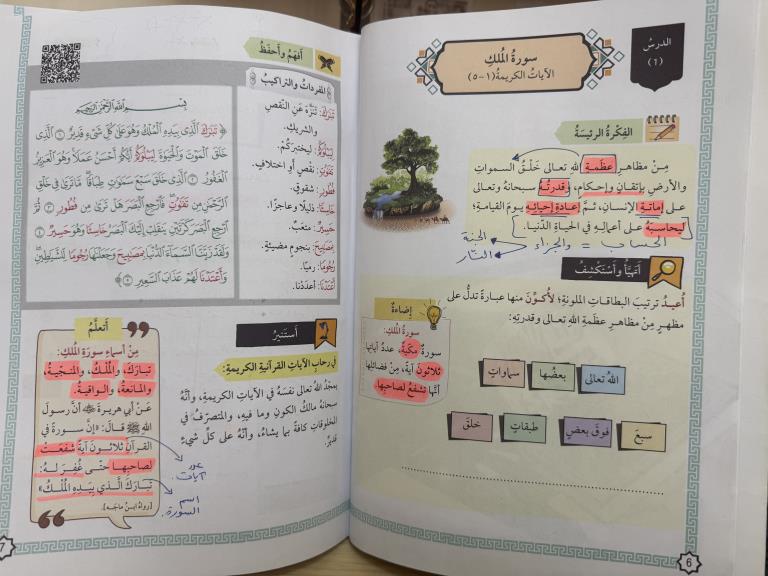 الدرسُ
(١)
سورةُ المُلكِ
الآياتُ الكريمةُ (١-٥)
الفِكرةُ الرئيسَةُ
مِنْ مظاهرِ عظَمةِ اللهِ تعالى خَلْقُ السمواتِ
والأرضِ بإتقانٍ وإحكامٍ، وقدرتُهُ سبحانهُ وتعالى
على إماتةِ الإنسانِ، ثمَّ إعادةِ إحيائِهِ يومَ القيامةِ؛
ليحاسبَهُ على أعمالِهِ في الحياةِ الدُّنيا.
الحساب = والجزاء
الجنة
النار
أتهيَّأُ وأستكشِفُ
أُعيدُ ترتيبَ البطاقاتِ الملونةِ؛ لأُكوِّنَ منها عبارةً تدلُّ على
مظهرٍ مِنْ مظاهرِ عظَمةِ اللهِ تعالى وقدرتِهِ:
إضاءةٌ
سورةُ المُلكِ:
سورةٌ مكيّةٌ، عددُ آياتِها
ثلاثونَ آيةً، مِنْ فضائلِها
أنَّها تشفعُ لصاحبِها
اللهُ تعالى
بعضُها
سماواتٍ
سبعَ
فوقَ بعضٍ
طبقاتٍ
خلقَ
6
أفهَمُ وأحفَظُ
المفرداتُ والتراكيبُ
تَبَٰرَكَ: تنزَّهَ عَنِ النَّقصِ
والشريكِ.
لِيَبۡلُوَكُمۡ: ليختبرَكُمْ.
تَفَٰوُتٖ: نقصٍ أو اختلافٍ.
فُطُورٖ: شقوقٍ.
خَاسِئٗا: ذليلًا وعاجزًا.
حَسِيرٞ: متعَبٌ.
بِمَصَٰبِيحَ: بنجومٍ مضيئةٍ.
رُجُومٗا: رميًا.
أَعۡتَدۡنَا: أعدَدْنا.
بِسۡمِ ٱللَّهِ ٱلرَّحۡمَٰنِ ٱلرَّحِيمِ
﴿ تَبَٰرَكَ ٱلَّذِي بِيَدِهِ ٱلۡمُلۡكُ وَهُوَ عَلَىٰ كُلِّ شَيۡءٖ قَدِيرٌ ١ ٱلَّذِي
خَلَقَ ٱلۡمَوۡتَ وَٱلۡحَيَوٰةَ لِيَبۡلُوَكُمۡ أَيُّكُمۡ أَحۡسَنُ عَمَلٗاۚ وَهُوَ ٱلۡعَزِيزُ
ٱلۡغَفُورُ ٢ ٱلَّذِي خَلَقَ سَبۡعَ سَمَٰوَٰتٖ طِبَاقٗاۖ مَّا تَرَىٰ فِي خَلۡقِ
ٱلرَّحۡمَٰنِ مِن تَفَٰوُتٖۖ فَٱرۡجِعِ ٱلۡبَصَرَ هَلۡ تَرَىٰ مِن فُطُورٖ ٣ ثُمَّ
ٱرۡجِعِ ٱلۡبَصَرَ كَرَّتَيۡنِ يَنقَلِبۡ إِلَيۡكَ ٱلۡبَصَرُ خَاسِئٗا وَهُوَ حَسِيرٞ ٤
وَلَقَدۡ زَيَّنَّا ٱلسَّمَآءَ ٱلدُّنۡيَا بِمَصَٰبِيحَ وَجَعَلۡنَٰهَا رُجُومٗا لِّلشَّيَٰطِينِۖ
وَأَعۡتَدۡنَا لَهُمۡ عَذَابَ ٱلسَّعِيرِ ٥ ﴾
أستنيرُ
في رحابِ الآياتِ القرآنيةِ الكريمةِ:
يمجّدُ اللهُ تعالى نفسَهُ في الآياتِ الكريمةِ، وأنَّهُ
سبحانهُ مالكُ الكونِ وما فيهِ، والمتصرّفُ في
المخلوقاتِ كافةً بما يشاءُ، وأنَّهُ على كلِّ شيءٍ
قديرٌ.
أتعلَّمُ
مِنْ أسماءِ سورةِ المُلكِ:
تباركَ، والمُلكُ، والمنجيةُ،
والمانعةُ، والواقيةُ.
عَنْ أبي هريرةَ أنَّ رسولَ
اللهِ ﷺ قالَ: «إنَّ سورةً في
القرآنِ ثلاثونَ آيةً شفعَتْ
لصاحبِها حتّى غُفِرَ لهُ:
تباركَ الَّذي بيدِهِ المُلكُ»
[رواهُ ابنُ ماجه].
عدد
آيات.
اسم
السورة.
7